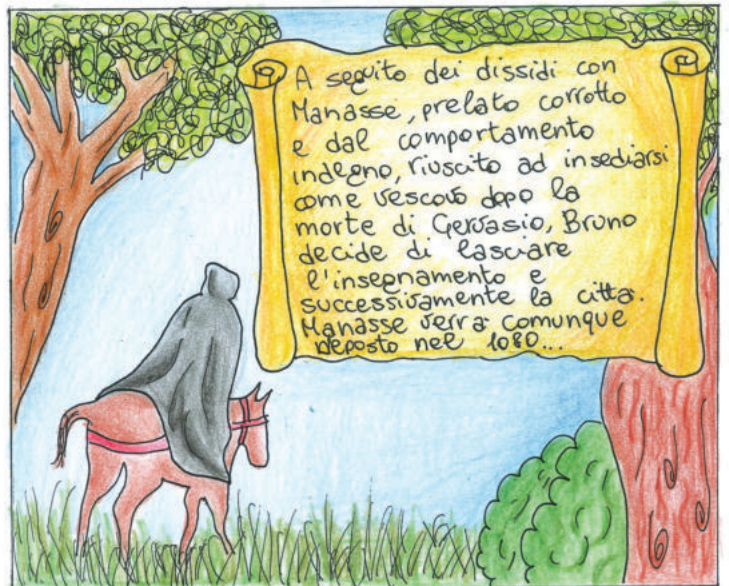 A seguito dei dissidi con
Manasse, prelato corrotto
e dal comportamento
indegno, riuscito ad insediarsi
come vescovo dopo la
morte di Gervasio, Bruno
decide di lasciare
l'insegnamento e
successivamente la città.
Manasse verrà comunque
deposto nel 1080...